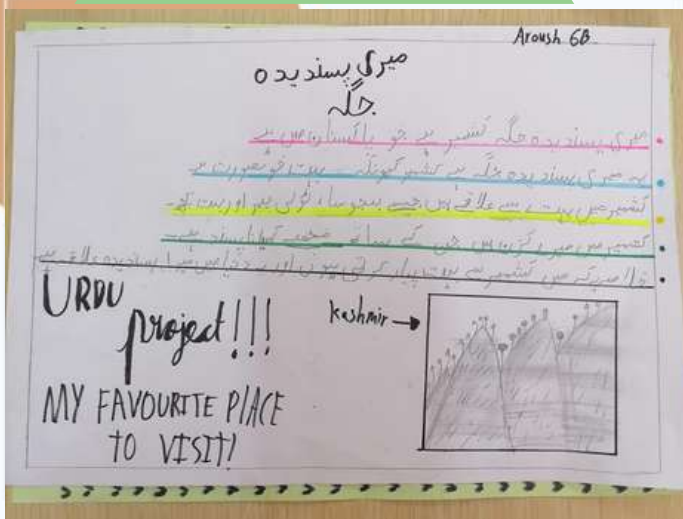 Aroush 6B
میری پسندیدہ
جگہ
میری پسندیدہ جگہ کشمیر ہے جو پاکستان میں ہے
یہ میری پسندیدہ جگہ ہے کشمیر کیونکہ بہت خوبصورت ہے
کشمیر میں بہت سے علاقے ہیں جیسے اور بہت کچھ۔
کشمیر میں میرے کزن ہیں جن کے ساتھ مجھے پسند ہے۔
میں کشمیر سے بہت پیار کرتی ہوں اور یہ دنیا میں میرا پسندیدہ علاقہ ہے
URDU
project!!!
Kashmir →
MY FAVOURITE PLACE
TO VISIT!